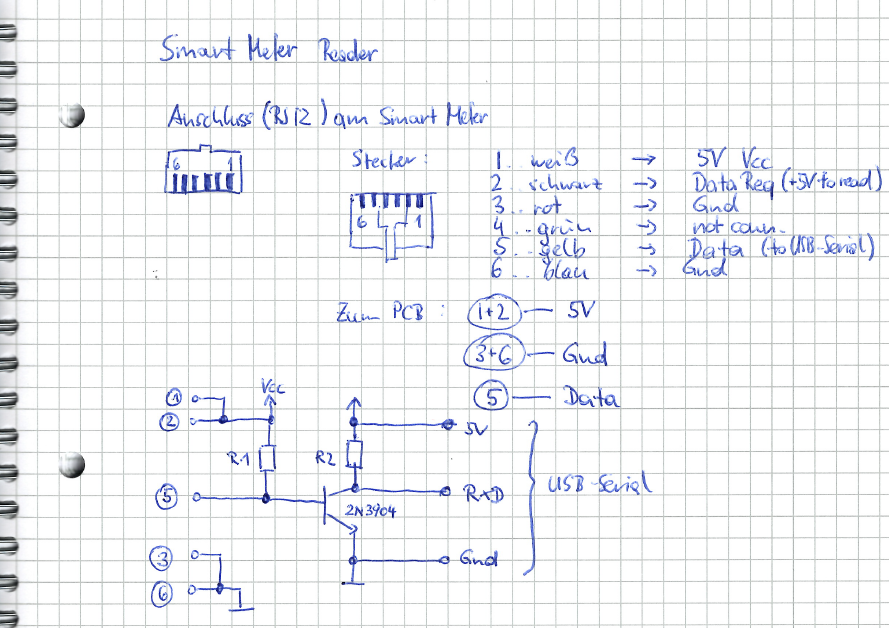 Smart Meter Reader
Anschluss (RJ12) am Smart Meter
6 1
Stecker:
6 1
1.. weiß → 5V Vcc
2.. schwarz → Data Req (+5V to read)
3.. rot → Gnd
4.. grün → not conn.
5.. gelb → Data (to USB-Serial)
6.. blau → Gnd
Zum PCB: 1+2 — 5V
3+6 — Gnd
5 — Data
1 Vcc
2 5V
R1 R2
5 RxD
2N3904
USB-Serial
3 Gnd
6